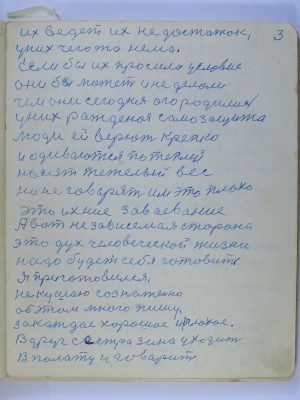 3
их ведет их не достаток,
у них чего то нема.
Если бы их просила условие
они бы может и не делали
чем они сегодня огородились
у них рожденая самозащита
люди ей верют крепко
и одиваются потеплей
имеят тежелый вес
но не говорят им это плохо
это ихние завоевание
А вот независемая сторона
это дух человеческой жизни
надо будет себя готовить
я приготовился,
не кушаю сознательно
об этом много пишу,
за каждае хорошае и плохое.
Вдруг сестра зина уходит
В палату и говорит